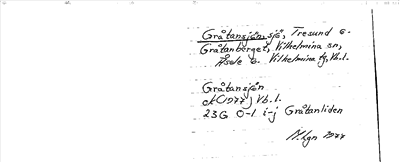 Gråtansjön, sjö, Tresund o.
Gråtanberget, Vilhelmina sn,
Åsele o. Vilhelmina tg, Vb.l.
Gråtansjön
ek (1977) Vb.l.
23G 0-1 i-j Gråtanliden
1977